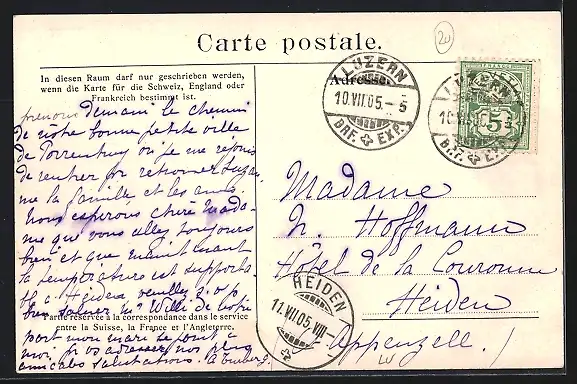 20
Carte postale.
In diesen Raum darf nur geschrieben werden,
wenn die Karte für die Schweiz, England oder
Frankreich bestimmt ist.
Adresse.
LUZERN
10.VII.05.-5
BRF. EXP.
LUZERN
BRF. EXP.
5
prenons Demain le chemin
de notre bonne petite ville
de Porrentruy où je me réjouis
de rentrer pr retrouver
me la famille et les amis.
Nous espérons chère Mada-
me que vous allez toujours
bien et que maintenant
la température est supporta-
ble à Heiden veuillez s.v.p.
bien saluer Mr Willi de votre
Partie réservée à la correspondance dans le service
entre la Suisse, la France et l'Angleterre.
part mon mari se joint à
moi pr vs adresser nos plus
amicales salutations.
Madame
N. Hoffmann
Hôtel de la Couronne
Heiden
Appenzell.
HEIDEN
11.VII.05.VIII-